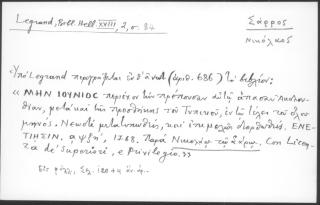 Legrand, Bibl. Hell. XVIII, 2, σ. 84
Σάρρος
Νικόλαος
Ὑπὸ Legrand περιγράφεται ἐν (ἀριθ. 686) τὸ βιβλίον:
« ΜΗΝ ΙΟΥΝΙΟΣ περιέχων τὴν πρέπουσαν αὐτῷ ἅπασαν Ἀκολου-
θίαν, μετὰ καὶ τῆς προσθήκης τοῦ Τυπικοῦ, ἐν τῷ τέλει τοῦ ὅλου
μηνός. Νεωστὶ μετατυπωθείς, καὶ ἐπιμελῶς διορθωθείς. ΕΝΕ-
ΤΙΗΣΙΝ, αψξη', 1768. Παρὰ Νικολάῳ τῷ Σάρῳ. Con Licen-
za de' superiori, e Privilegio. »
Εἰς φύλλ. Σελ. 120